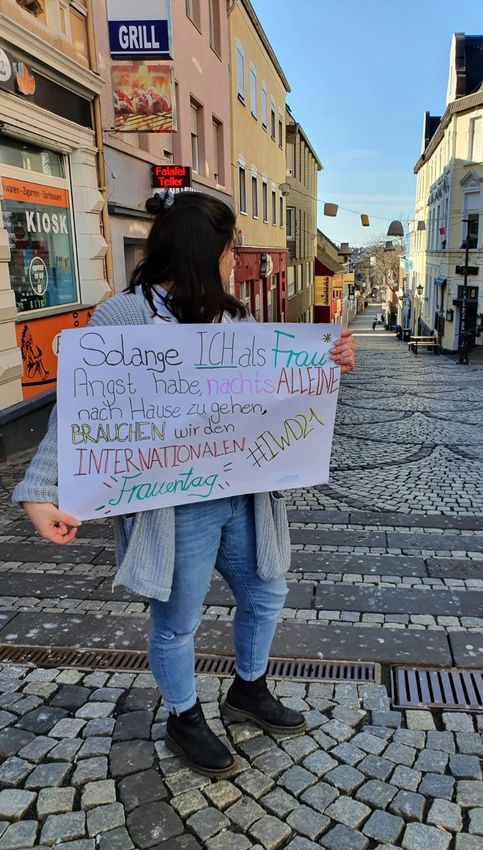 GRILL
Falafel
Teller
waren - Zigarren - Spirituosen
KIOSK
Solange ICH als Frau
Angst habe, nachts ALLEINE
nach Hause zu gehen,
BRAUCHEN wir den
INTERNATIONALEN
Frauentag
#IWD21